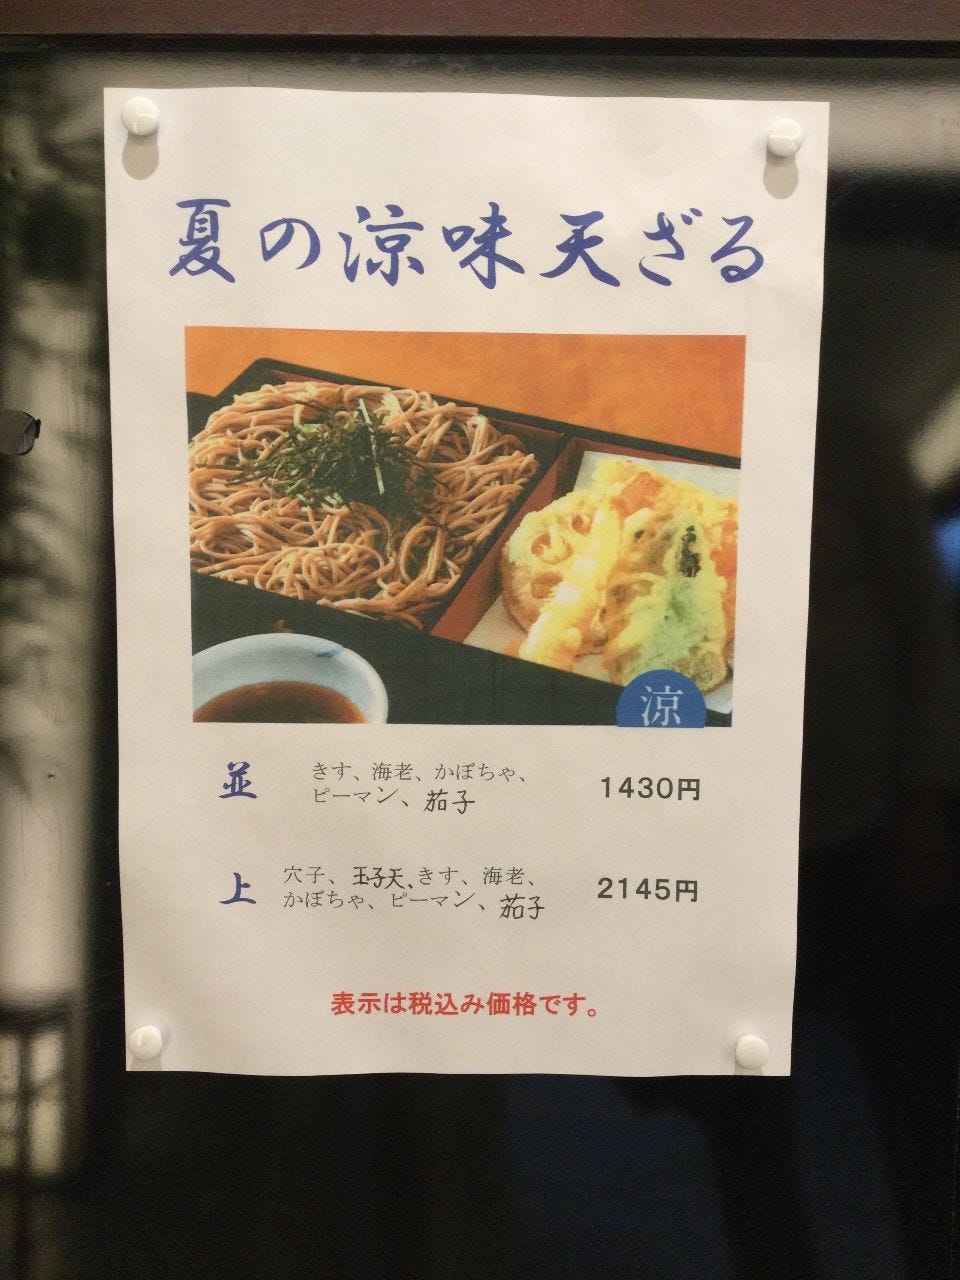 夏の涼味天ざる
涼
並
きす、海老、かぼちゃ、
ピーマン、茄子
1430円
上
穴子、玉子天、きす、海老、
かぼちゃ、ピーマン、茄子
2145円
表示は税込み価格です。